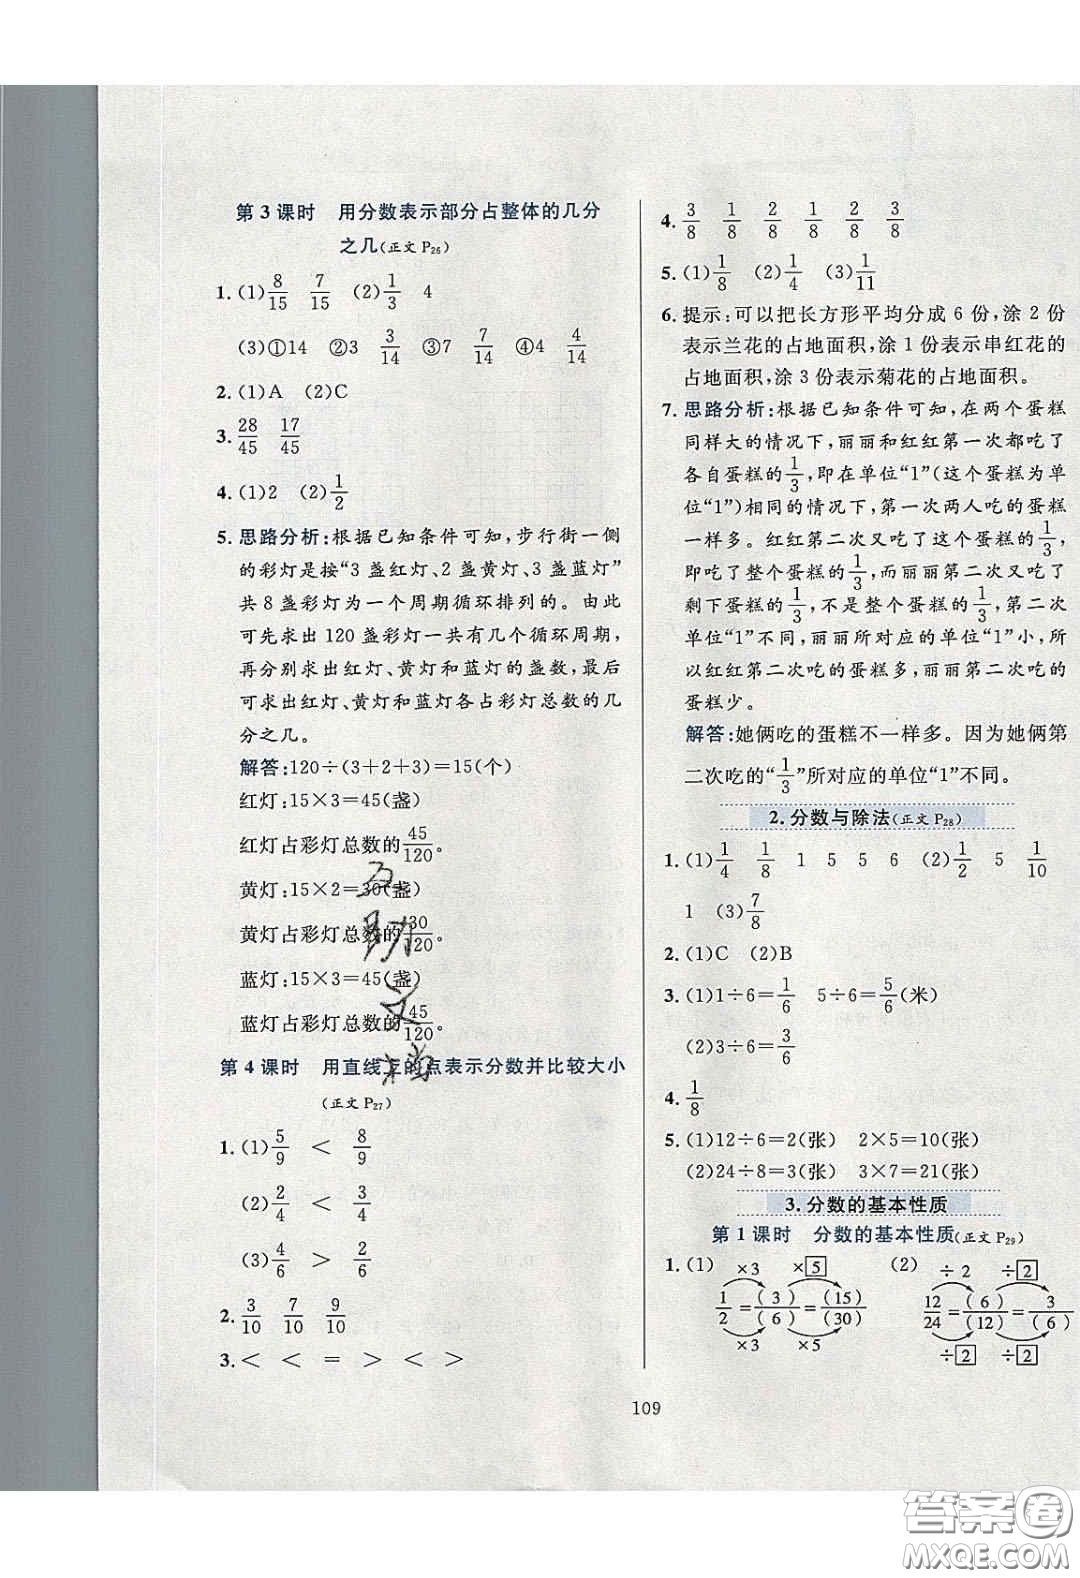 第3课时　用分数表示部分占整体的几分
之几(正文 P₂₆)
1. (1) 8/15　7/15　(2) 1/3　4
(3)①14　②3　3/14　③7　7/14　④4　4/14
2. (1)A　(2)C
3. 28/45　17/45
4. (1)2　(2) 1/2
5. 思路分析:根据已知条件可知,步行街一侧
的彩灯是按“3 盏红灯、2 盏黄灯、3 盏蓝灯”
共 8 盏彩灯为一个周期循环排列的。由此
可先求出 120 盏彩灯一共有几个循环周期,
再分别求出红灯、黄灯和蓝灯的盏数,最后
可求出红灯、黄灯和蓝灯各占彩灯总数的几
分之几。
解答:120÷(3+2+3)=15(个)
红灯:15×3=45(盏)
红灯占彩灯总数的 45/120。
黄灯:15×2=30(盏)
黄灯占彩灯总数的 30/120。
蓝灯:15×3=45(盏)
蓝灯占彩灯总数的 45/120。
互助文档
第4课时　用直线上的点表示分数并比较大小
(正文 P₂₇)
1. (1) 5/9　<　8/9
(2) 2/4　<　3/4
(3) 4/6　>　2/6
2. 3/10　7/10　9/10
3. <　<　=　>　<　>
4. 3/8　1/8　2/8　1/8　2/8　3/8
5. (1) 1/8　(2) 1/4　(3) 1/11
6. 提示:可以把长方形平均分成 6 份,涂 2 份
表示兰花的占地面积,涂 1 份表示串红花的
占地面积,涂 3 份表示菊花的占地面积。
7. 思路分析:根据已知条件可知,在两个蛋糕
同样大的情况下,丽丽和红红第一次都吃了
各自蛋糕的 1/3,即在单位“1”(这个蛋糕为单
位“1”)相同的情况下,第一次两人吃的蛋糕
一样多。红红第二次又吃了整个蛋糕的 1/3,
即吃了整个蛋糕的 1/3,而丽丽第二次又吃了
剩下蛋糕的 1/3,不是整个蛋糕的 1/3。第二次
单位“1”不同,丽丽所对应的单位“1”小,所
以红红第二次吃的蛋糕多,丽丽第二次吃的
蛋糕少。
解答:她俩吃的蛋糕不一样多。因为她俩第
二次吃的“1/3”所对应的单位“1”不同。
2. 分数与除法(正文 P₂₈)
1. (1) 1/4　1/8　1　5　5　6　(2) 1/2　5　1/10
1　(3) 7/8
2. (1)C　(2)B
3. (1)1÷6=1/6　5÷6=5/6(米)
(2)3÷6=3/6
4. 1/8
5. (1)12÷6=2(张)　2×5=10(张)
(2)24÷8=3(张)　3×7=21(张)
3. 分数的基本性质
第1课时　分数的基本性质(正文 P₂₉)
1. (1)　×3　×5　(2)　÷2　÷2
1/2=(3)/(6)=(15)/(30)　12/24=(6)/(12)=3/(6)
×3　×5　÷2　÷2
109
答案圈
MXQE.COM